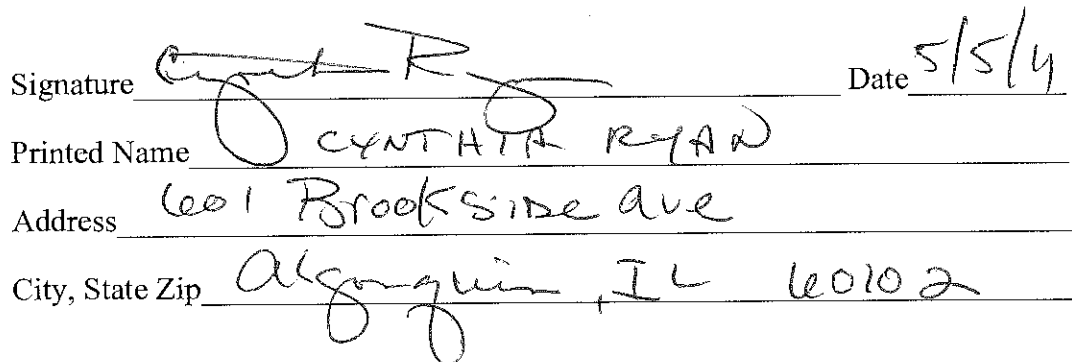 Signature Cynthia Ryan Date 5/5/11
Printed Name CYNTHIA RYAN
Address 601 Brookside ave
City, State Zip Algonquin, IL 60102